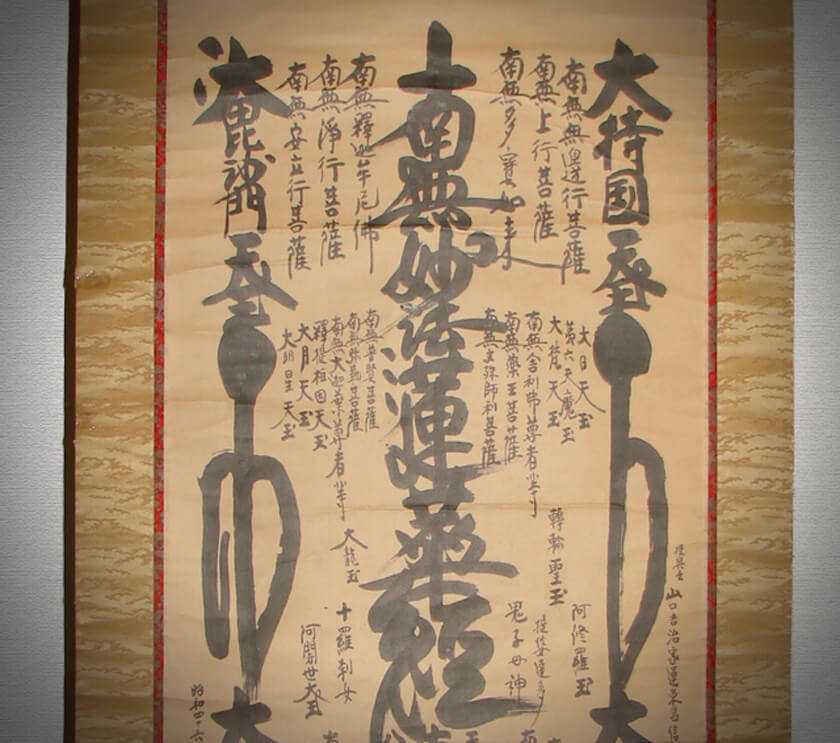 大持国天王
南無無邊行菩薩
南無上行菩薩
南無多寶如来
南無妙法蓮華経
南無釋迦牟尼佛
南無淨行菩薩
南無安立行菩薩
大毘沙門天王
大日天王
第六天魔王
大梵天王
南無舎利弗尊者等
南無薬王菩薩
南無文殊師利菩薩
南無普賢菩薩
南無弥勒菩薩
南無大迦葉尊者等
釋提桓因天王
大月天王
大明星天王
授与之
山口吉治家運栄昌
阿修羅王
轉輪聖王
提婆達多
鬼子母神
大龍王
十羅刹女
阿闍世大王
大
大
昭和四十六